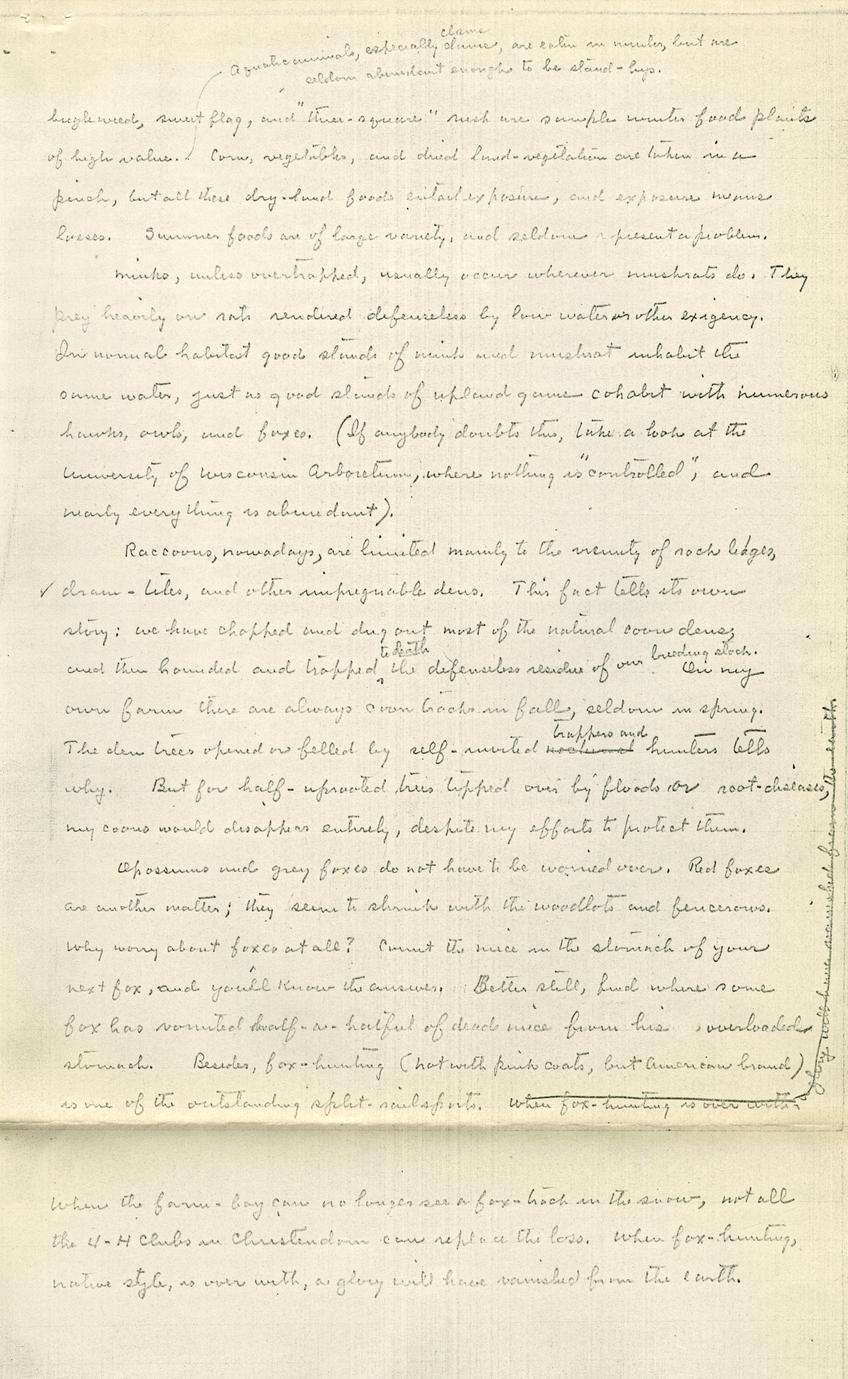 clams
Aquatic animals, especially clams, are eaten in winter, but are
seldom abundant enough to be stand-bys.
bugleweed, sweet flag, and "three-square" rush are sample winter food plants
of high value. Corn, vegetables, and dried land-vegetation are taken in a
pinch, but all these dry-land foods entail exposure, and exposure means
losses. Summer foods are of large variety, and seldom represent a problem.
Minks, unless overtrapped, usually occur wherever muskrats do. They
prey heavily on rats rendered defenseless by low water or other exigency.
In normal habitat good stands of mink and muskrat inhabit the
same water, just as good stands of upland game cohabit with numerous
hawks, owls, and foxes. (If anybody doubts this, take a look at the
University of Wisconsin Arboretum, where nothing is "controlled", and
nearly everything is abundant).
Raccoons, nowadays, are limited mainly to the vicinity of rock ledges,
✓ drain-tiles, and other impregnable dens. This fact tells its own
story: we have chopped and dug out most of the natural coon dens,
to death breeding stock.
and then hounded and trapped the defenseless residue of our On my
own farm there are always coon tracks in fall, seldom in spring.
trappers and
The den trees opened or felled by self-invited nocturnal hunters tells
why. But for half-uprooted trees tipped over by floods or root-diseases,
my coons would disappear entirely, despite my efforts to protect them.
Opossums and grey foxes do not have to be worried over. Red foxes
are another matter; they seem to shrink with the woodlots and fencerows.
Why worry about foxes at all? Count the mice in the stomach of your
next fox, and you'll know the answer. Better still, find where some
fox has vomited half-a-hatful of dead mice from his overloaded
stomach. Besides, fox-hunting (not with pink coats, but American brand)
is one of the outstanding split-rail sports. When fox-hunting is over with
a glory will have vanished from the earth.
When the farm-boy can no longer see a fox-track in the snow, not all
the 4-H clubs in Christendom can replace the loss. When fox-hunting,
native style, is over with, a glory will have vanished from the earth.